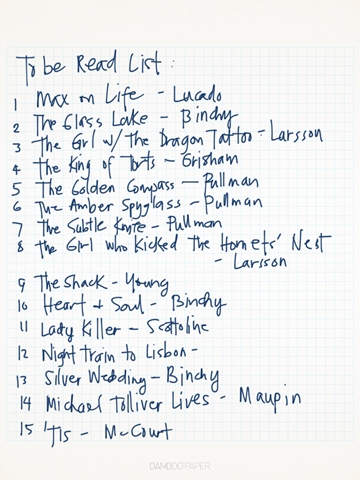 To be Read List:
1 Max on Life - Lucado
2 The Glass Lake - Binchy
3 The Girl w/ The Dragon Tattoo - Larsson
4 The King of Torts - Grisham
5 The Golden Compass - Pullman
6 The Amber Spyglass - Pullman
7 The Subtle Knife - Pullman
8 The Girl who Kicked the Hornets' Nest
- Larsson
9 The Shack - Young
10 Heart + Soul - Binchy
11 Lady Killer - Scottoline
12 Night Train to Lisbon -
13 Silver Wedding - Binchy
14 Michael Tolliver Lives - Maupin
15 'Tis - McCourt
BAMBOO PAPER